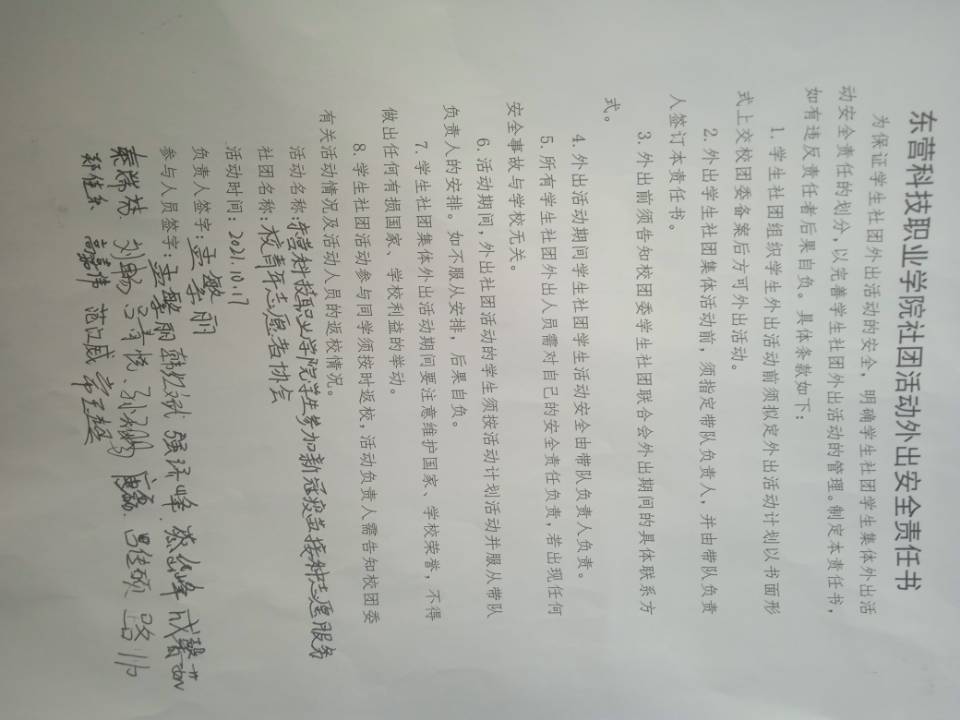 东营科技职业学院社团活动外出安全责任书
为保证学生社团外出活动的安全，明确学生社团学生集体外出活
动安全责任的划分，以完善学生社团外出活动的管理。制定本责任书，
如有违反责任者后果自负。具体条款如下：
1. 学生社团组织学生外出活动前须拟定外出活动计划以书面形
式上交校团委备案后方可外出活动。
2. 外出学生社团集体活动前，须指定带队负责人，并由带队负责
人签订本责任书。
3. 外出前须告知校团委学生社团联合会外出期间的具体联系方
式。
4. 外出活动期间学生社团学生活动安全由带队负责人负责。
5. 所有学生社团外出人员需对自己的安全责任负责，若出现任何
安全事故与学校无关。
6. 活动期间，外出社团活动的学生须按活动计划活动并服从带队
负责人的安排。如不服从安排，后果自负。
7. 学生社团集体外出活动期间要注意维护国家、学校荣誉，不得
做出任何有损国家、学校利益的举动。
8. 学生社团活动参与同学须按时返校，活动负责人需告知校团委
有关活动情况及活动人员的返校情况。
活动名称：东营科技职业学院学生参加新冠疫苗接种志愿服务
社团名称：校青年志愿者协会
活动时间：2021.10.17
负责人签字：孟敏丽
参与人员签字：孟黎丽 韩炆斌 强环峰
秦祥栋 刘畅 吕奇悦、孙鹏 吕佳硕 路帅
高嘉伟 范江威